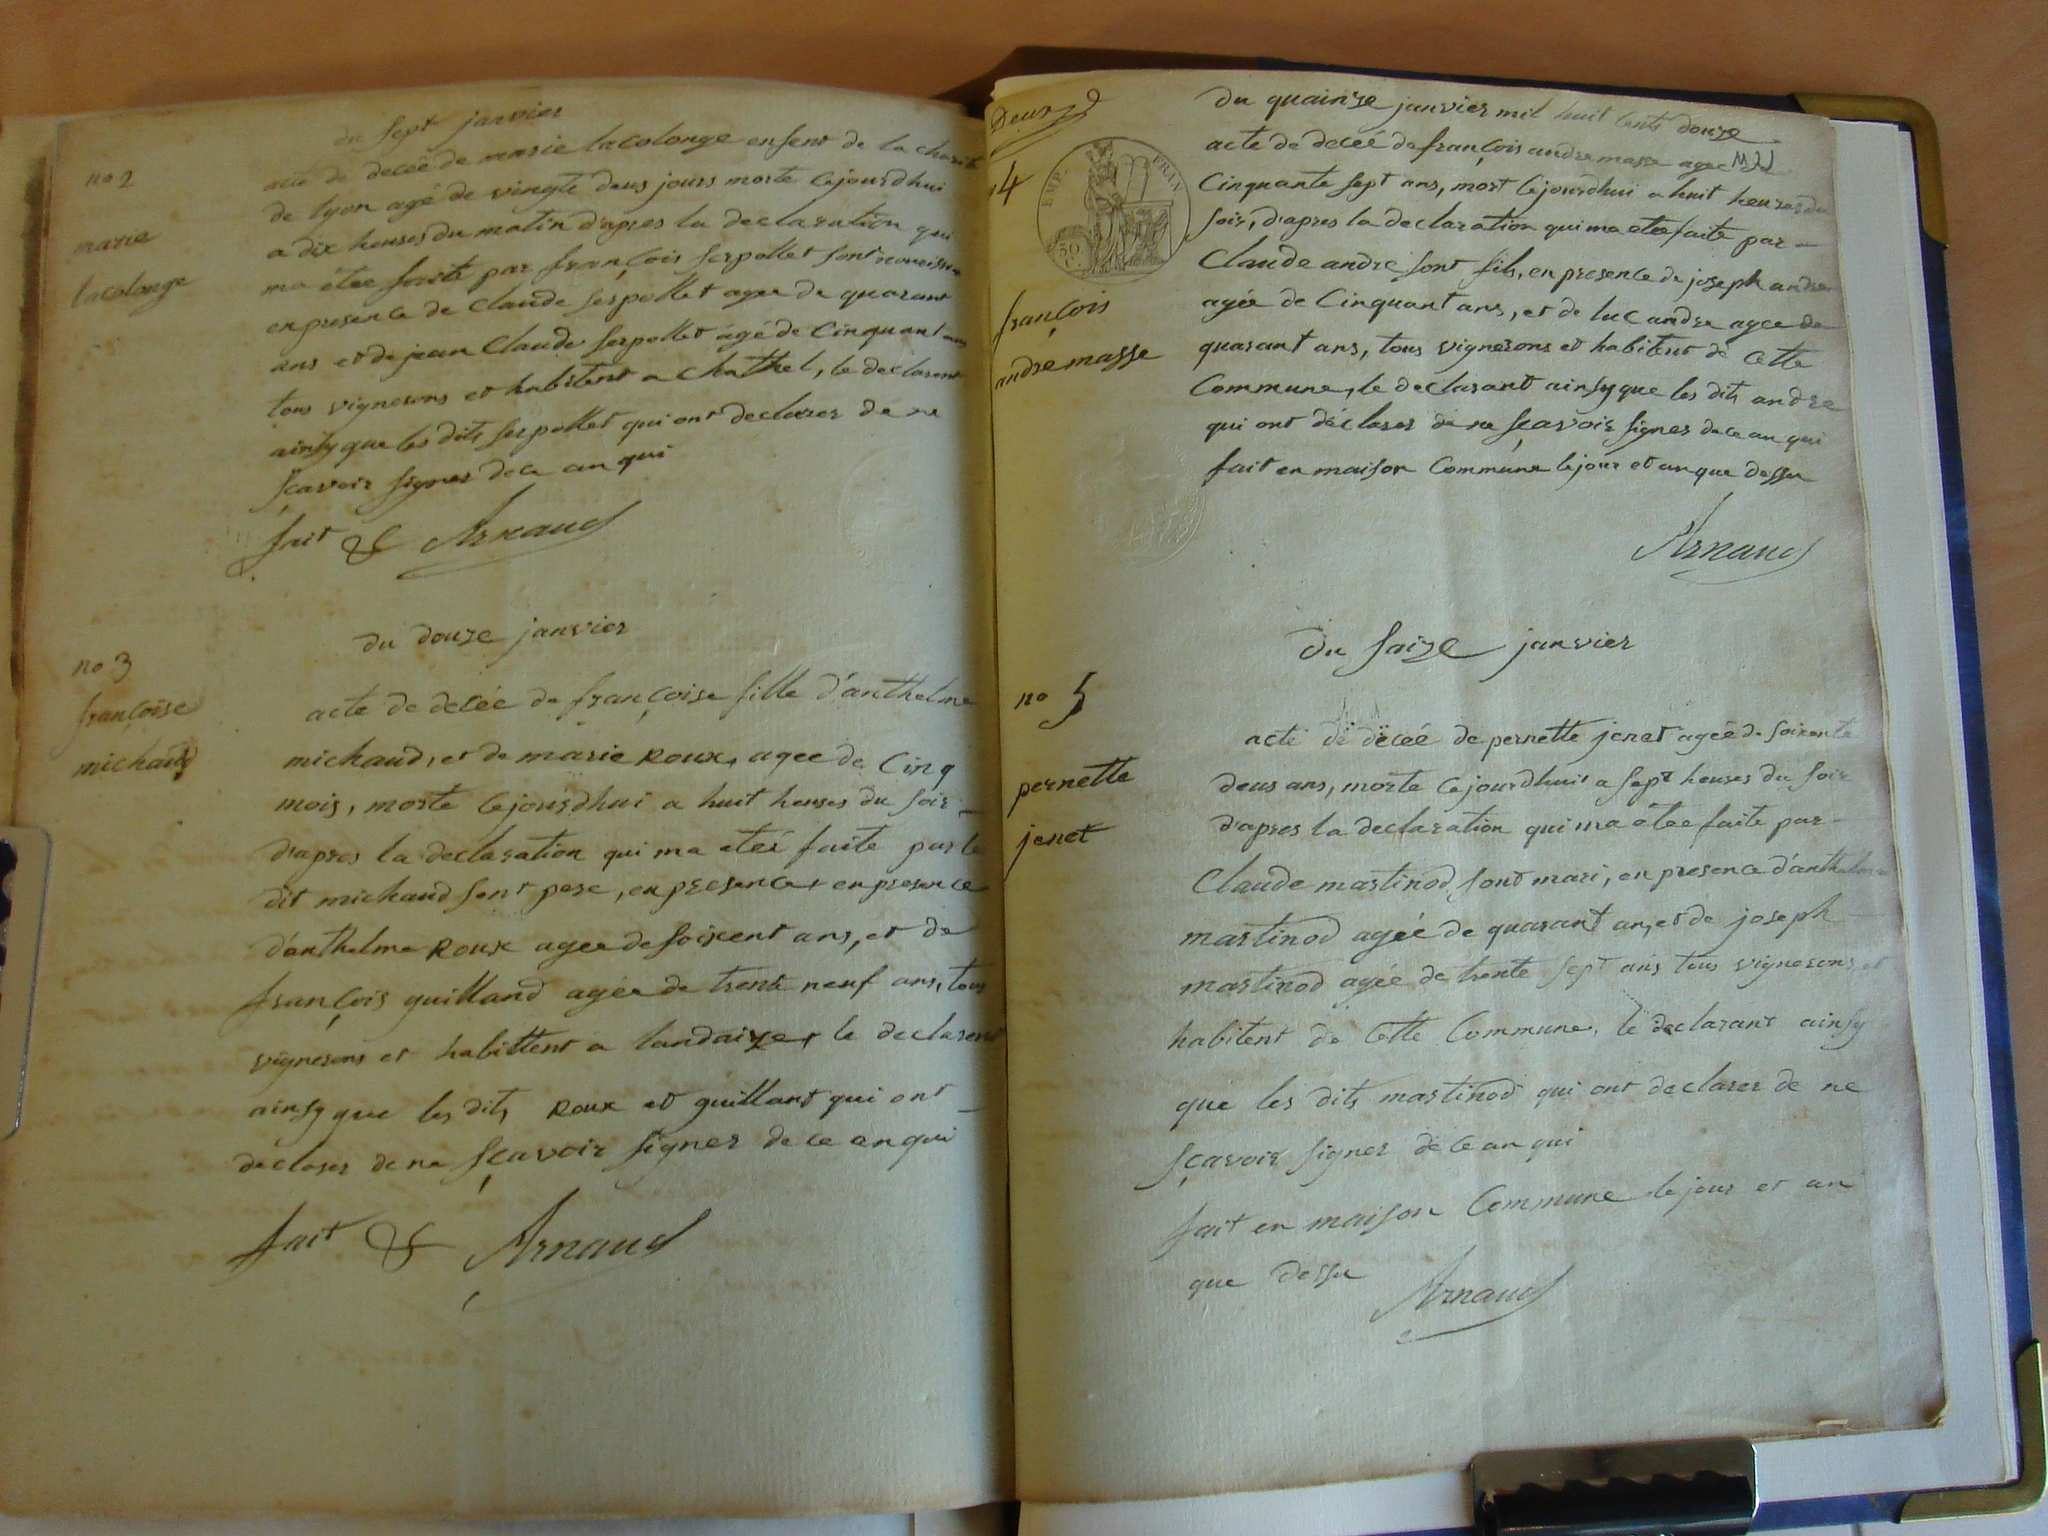 du sept janvier
no 2
acte de decée de marie lacolonge enfent de la charité
de lyon agé de vingte deus jours morte cejourdhui
marie
a dix heures du matin d'apres la declaration qui
lacolonge
ma étée faite par françois serpollet sont
en presence de Claude serpollet agee de quarant
ans et de jean Claude serpollet âgé de Cinquant ans
tous vignerons et habitent a Chathel, le declarent
ainsy que les dits serpollet qui ont declarer de ne
sçavoir signer de ce an qui
fait & Arnaud
du douze janvier
no 3
françoise
michaud
acte de decée de françoise fille d'anthelme
michaud, et de marie Roux, agee de Cinq
mois, morte cejourdhui a huit heures du soir
d'apres la declaration qui ma eteé faite par le
dit michaud sont pere, en presence, en presence
d'anthelme Roux agee de soixent ans, et de
françois guilland agée de trente neuf ans, tous
vignerons et habittent a landaize, le declarent
ainsy que les dits Roux et guillant qui ont
declarer de ne sçavoir signer de ce an qui
fait & Arnaud
Deux
du quainze janvier mil huit cents douze
4
EMP. FRAN
50 C.
acte de decée de françois andre masse agee
Cinquante sept ans, mort cejourdhui a huit heures du
soir, d'apres la declaration qui ma etee faite par
Claude andre sont fils, en presence de joseph andre
françois
andre masse
agée de Cinquant ans, et de luc andre agee de
quarant ans, tous vignerons et habitent de Cette
Commune, le declarant ainsy que les dits andre
qui ont déclarer de ne sçavoir signer de ce an qui
fait en maison Commune le jour et an que dessu
Arnaud
du saize janvier
no 5
pernette
jenet
acte de decée de pernette jenet ageé de soixente
deus ans, morte cejourdhuit a sept heures du soir
d'apres la declaration qui ma étee faite par
Claude martinod sont mari, en presence d'anthelme
martinod ageé de quarant an, et de joseph
martinod agée de trente sept ans tous vignerons et
habitent de Cette Commune, le declarant ainsy
que les dits martinod qui ont declarer de ne
sçavoir signer de ce an qui
fait en maison Commune le jour et an
que dessu Arnaud